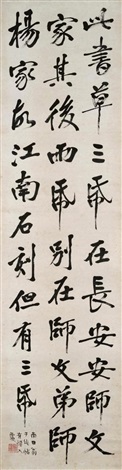 此書草三帋在長安安師文
家其後兩帋別在師文弟師
楊家故江南石刻但有三帋